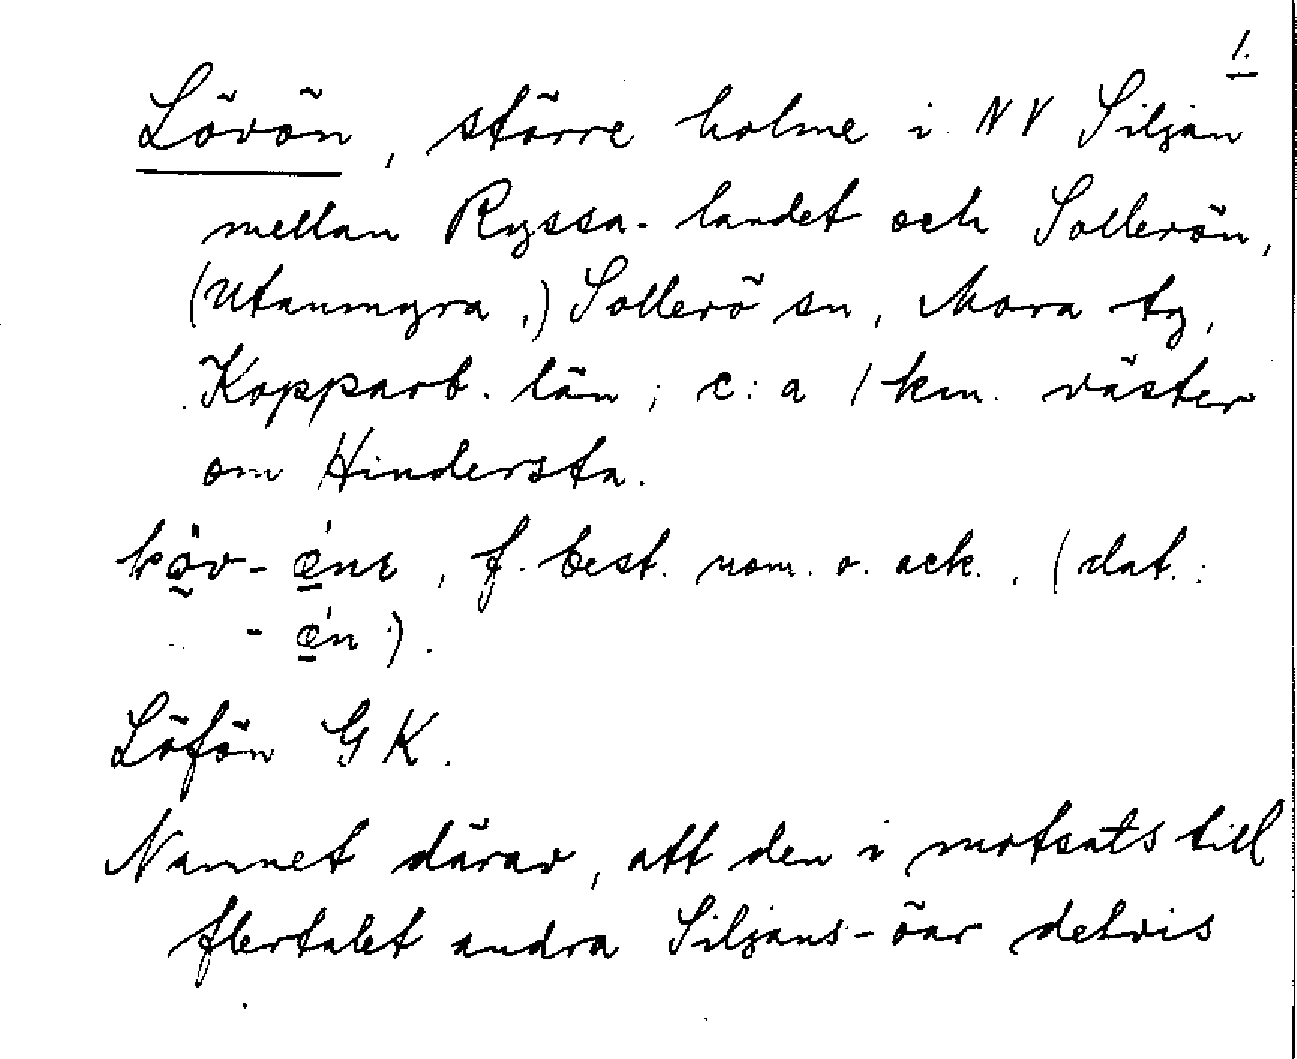 1.
Lövön, större holme i NV Siljan
mellan Ryssa-landet och Sollerön,
(Utanmyra,) Sollerö sn, Mora tg,
Kopparb. län; c:a 1 km. väster
om Hindersta.
f. best. nom. o. ack., (dat.:
Löfön GK.
Namnet därav, att den i motsats till
flertalet andra Siljans-öar delvis